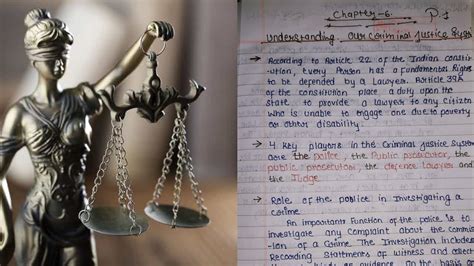 Chapter-6.
P.1
Understanding Our Criminal Justice Syst
→ According to Article 22 of the Indian constit
-ution, Every Person has a fundamental Right
to be defended by a Lawyer. Article 39A
of the constitution place a duty upon the
state to provide a lawyer to any citize
who is unable to engage one due to poverty
or other disability.
→ 4 Key players in the Criminal justice System
are the police, the Public prosecutor, the
public prosecutor, the defence lawyer and
the Judge
→ Role of the police in Investigating a
crime.
An important function of the police is to
investigate any Complaint about the Commis
-ion of a Crime. The Investigation includes
Recording Statements of witness and collect
evidence on the basis of